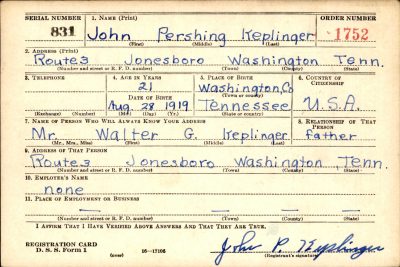 SERIAL NUMBER 1. NAME (Print) ORDER NUMBER
831 John Pershing Keplinger 1752
(First) (Middle) (Last)
2. ADDRESS (Print)
Route 3 Jonesboro Washington Tenn.
(Number and street or R. F. D. number) (Town) (County) (State)
3. TELEPHONE 4. AGE IN YEARS 5. PLACE OF BIRTH 6. COUNTRY OF CITIZENSHIP
21 Washington, Co
DATE OF BIRTH (Town or county)
Aug. 28 1919 Tennessee U.S.A.
(Exchange) (Number) (Mo.) (Day) (Yr.) (State or country)
7. NAME OF PERSON WHO WILL ALWAYS KNOW YOUR ADDRESS 8. RELATIONSHIP OF THAT PERSON
Mr. Walter G. Keplinger father
(Mr., Mrs., Miss) (First) (Middle) (Last)
9. ADDRESS OF THAT PERSON
Route 3 Jonesboro Washington Tenn.
(Number and street or R. F. D. number) (Town) (County) (State)
10. EMPLOYER'S NAME
none
11. PLACE OF EMPLOYMENT OR BUSINESS
(Number and street or R. F. D. number) (Town) (County) (State)
I AFFIRM THAT I HAVE VERIFIED ABOVE ANSWERS AND THAT THEY ARE TRUE.
REGISTRATION CARD
D. S. S. Form 1 (over) 16—17105 John P. Keplinger
(Registrant's signature)